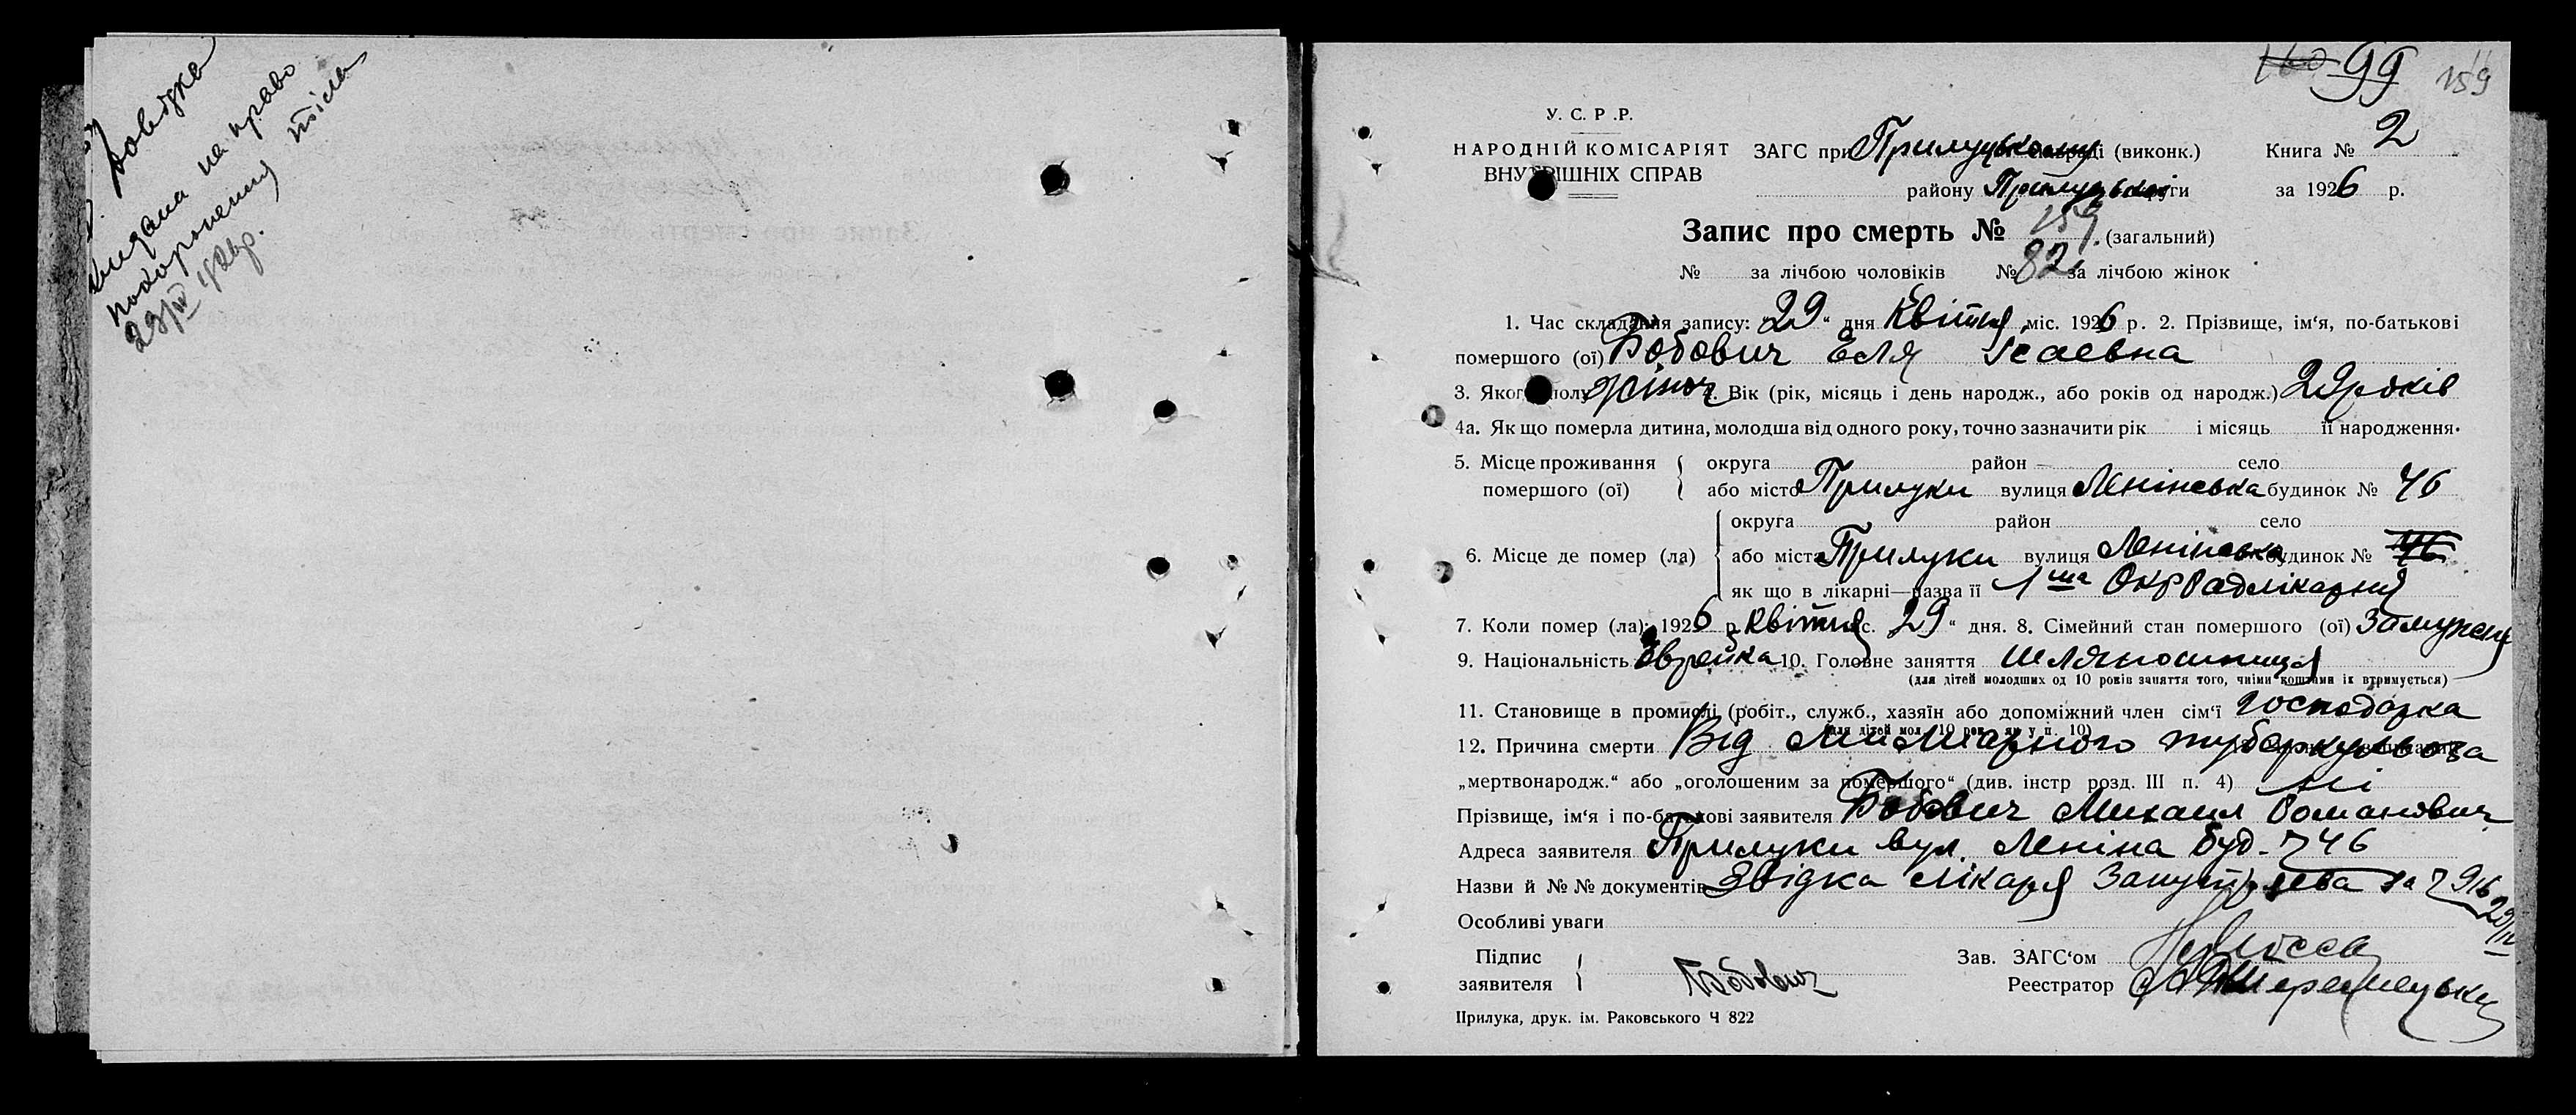 Довідка
видана на право
похоронення тіла
29/IV 1926р.
99 159
У. С. Р .Р.
НАРОДНІЙ КОМІСАРІЯТ
ВНУТРІШНІХ СПРАВ
ЗАГС при Прилуцькому (виконк.)
району Прилуцької округи
Книга № 2
за 1926 р.
Запис про смерть № 159 (загальний)
№ за лічбою чоловіків № 82 за лічбою жінок
1. Час складання запису: "29" дня Квітня міс. 1926 р. 2. Прізвище, ім'я, по-батькові
помершого (ої) Бобович Еля Ісаевна
3. Якого полу жіноч 4. Вік (рік, місяць і день народж., або років од народж.) 29 років
4а. Як що померла дитина, молодша від одного року, точно зазначити рік і місяць її народження.
5. Місце проживання помершого (ої) { округа район село
або місто Прилуки вулиця Ленінська будинок № 46
6. Місце де помер (ла) { округа район село
або міста Прилуки вулиця Ленінська будинок № 46
як що в лікарні—назва її 1ша Окррадлікарня
7. Коли помер (ла): 1926 р. Квітня міс. 29 " дня. 8. Сімейний стан помершого (ої) Замужня
9. Національність Єврейка 10. Головне заняття Шляпошниця
(для дітей молодших од 10 років заняття того, чиїми коштами їх втримується)
11. Становище в промислі (робіт., служб., хазяїн або допоміжний член сім'ї господарка
(для дітей мол. 10 рок. як у п. 10)
12. Причина смерти Від Миліарного туберкульоза
„мертвонародж." або „оголошеним за помершого" (див. інстр розд. III п. 4) Ні
Прізвище, ім'я і по-батькові заявителя Бобович Михаил Романович
Адреса заявителя Прилуки вул. Леніна буд. 46
Назви й №№ документів Звідка лікаря за 916 29/IV
Особливі уваги
Підпис заявителя { Бобович
Зав. ЗАГС'ом
Реестратор
Прилука, друк. ім. Раковського Ч 822